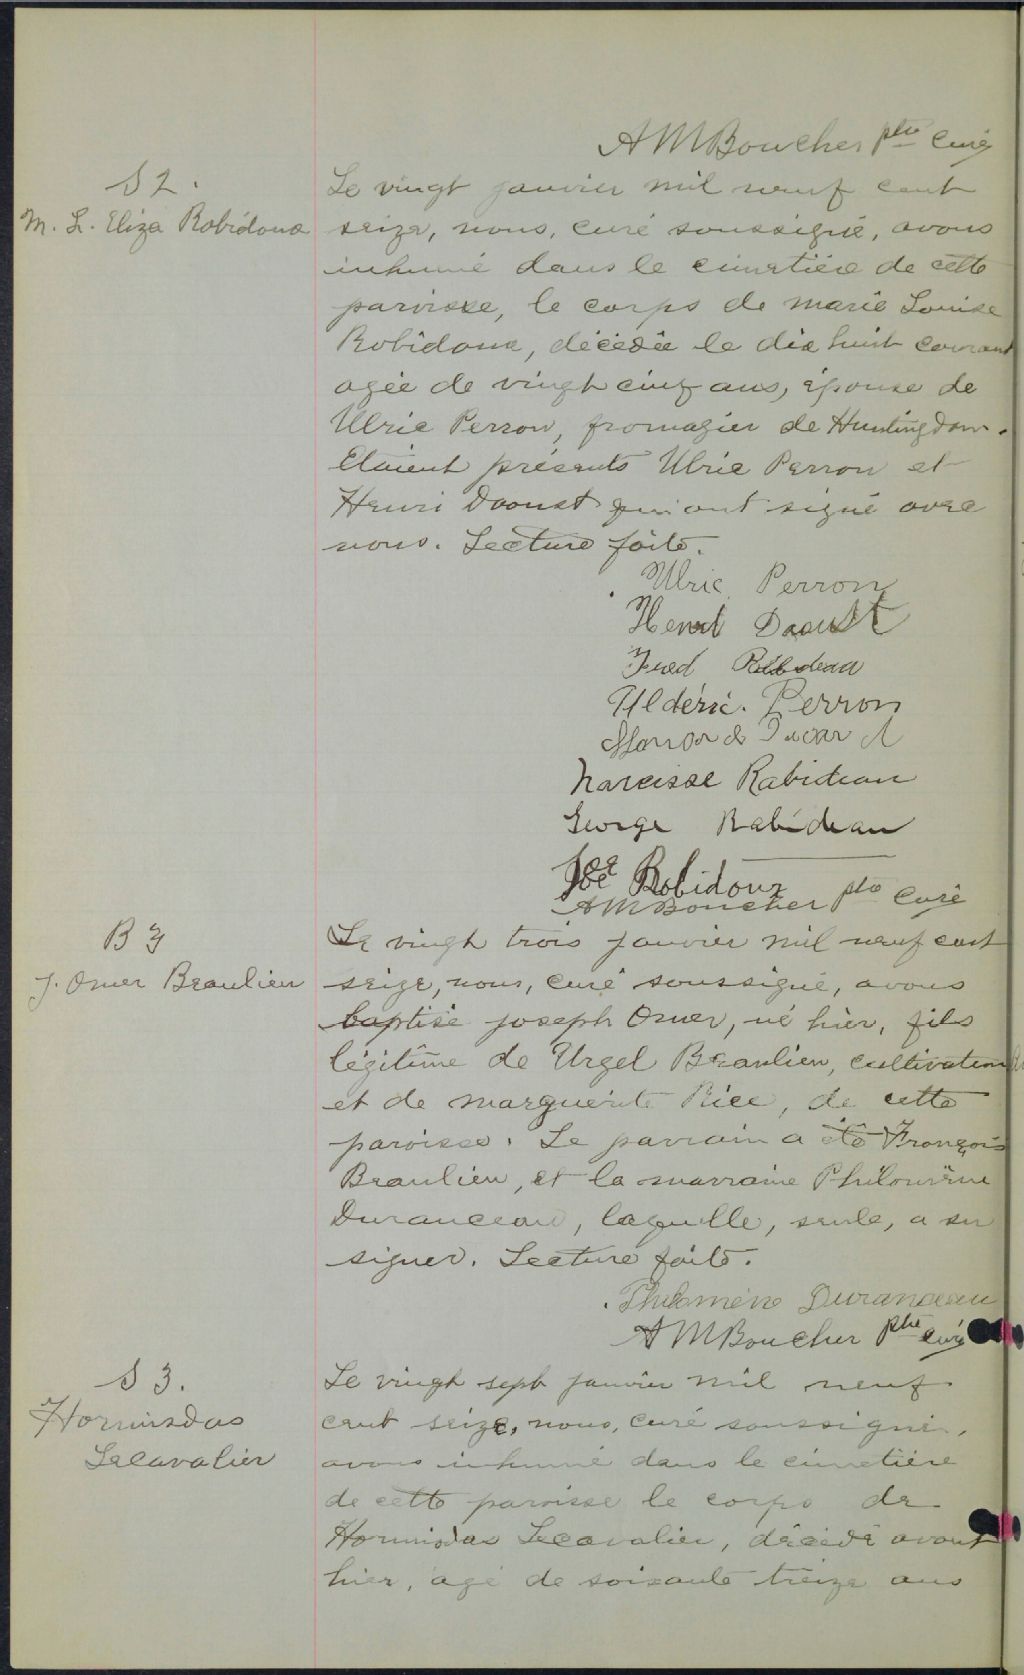 AMBoucher ptre curé
S 2.
M. L. Eliza Robidoux
Le vingt janvier mil neuf cent
seize, nous, curé soussigné, avons
inhumé dans le cimetière de cette
paroisse, le corps de Marie Louise
Robidoux, décédée le dix huit courant
agée de vingt cinq ans, épouse de
Ulric Perron, fromagier de Huntingdon.
Etaient présents Ulric Perron et
Henri Daoust qui ont signé avec
nous. Lecture faite.
Ulric Perron
Henri Daoust
Fred Robideau
Uldéric Perron
Narcisse Rabideau
George Rabideau
Joe Robidoux
AMBoucher ptre curé
B 3
J. Omer Beaulieu
Le vingt trois janvier mil neuf cent
seize, nous, curé soussigné, avons
baptisé Joseph Omer, né hier, fils
légitime de Urgel Beaulieu, cultivateur
et de Marguerite Rice, de cette
paroisse. Le parrain a été François
Beaulieu, et la marraine Philomène
Duranceau, laquelle, seule, a su
signer. Lecture faite.
Philomène Duranceau
AMBoucher ptre curé
S 3.
Hormisdas
Lecavalier
Le vingt sept janvier mil neuf
cent seize, nous, curé soussigné,
avons inhumé dans le cimetière
de cette paroisse le corps de
Hormisdas Lecavalier, décédé avant
hier, agé de soixante treize ans